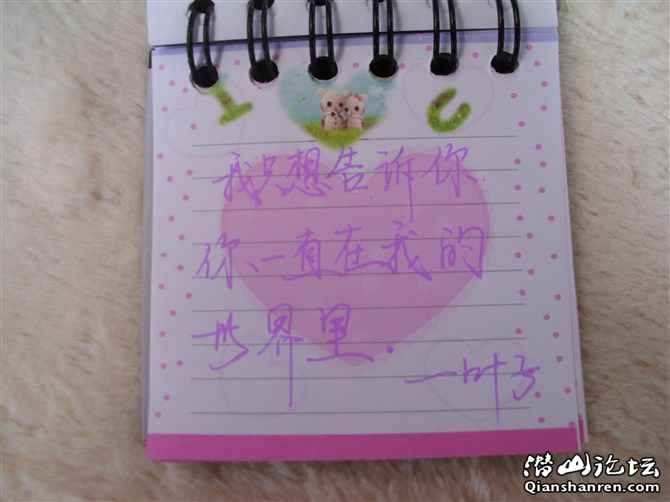 I U
我只想告诉你
你、一直在我的
世界里.
一叶子
潜山论坛
Qianshanren.com